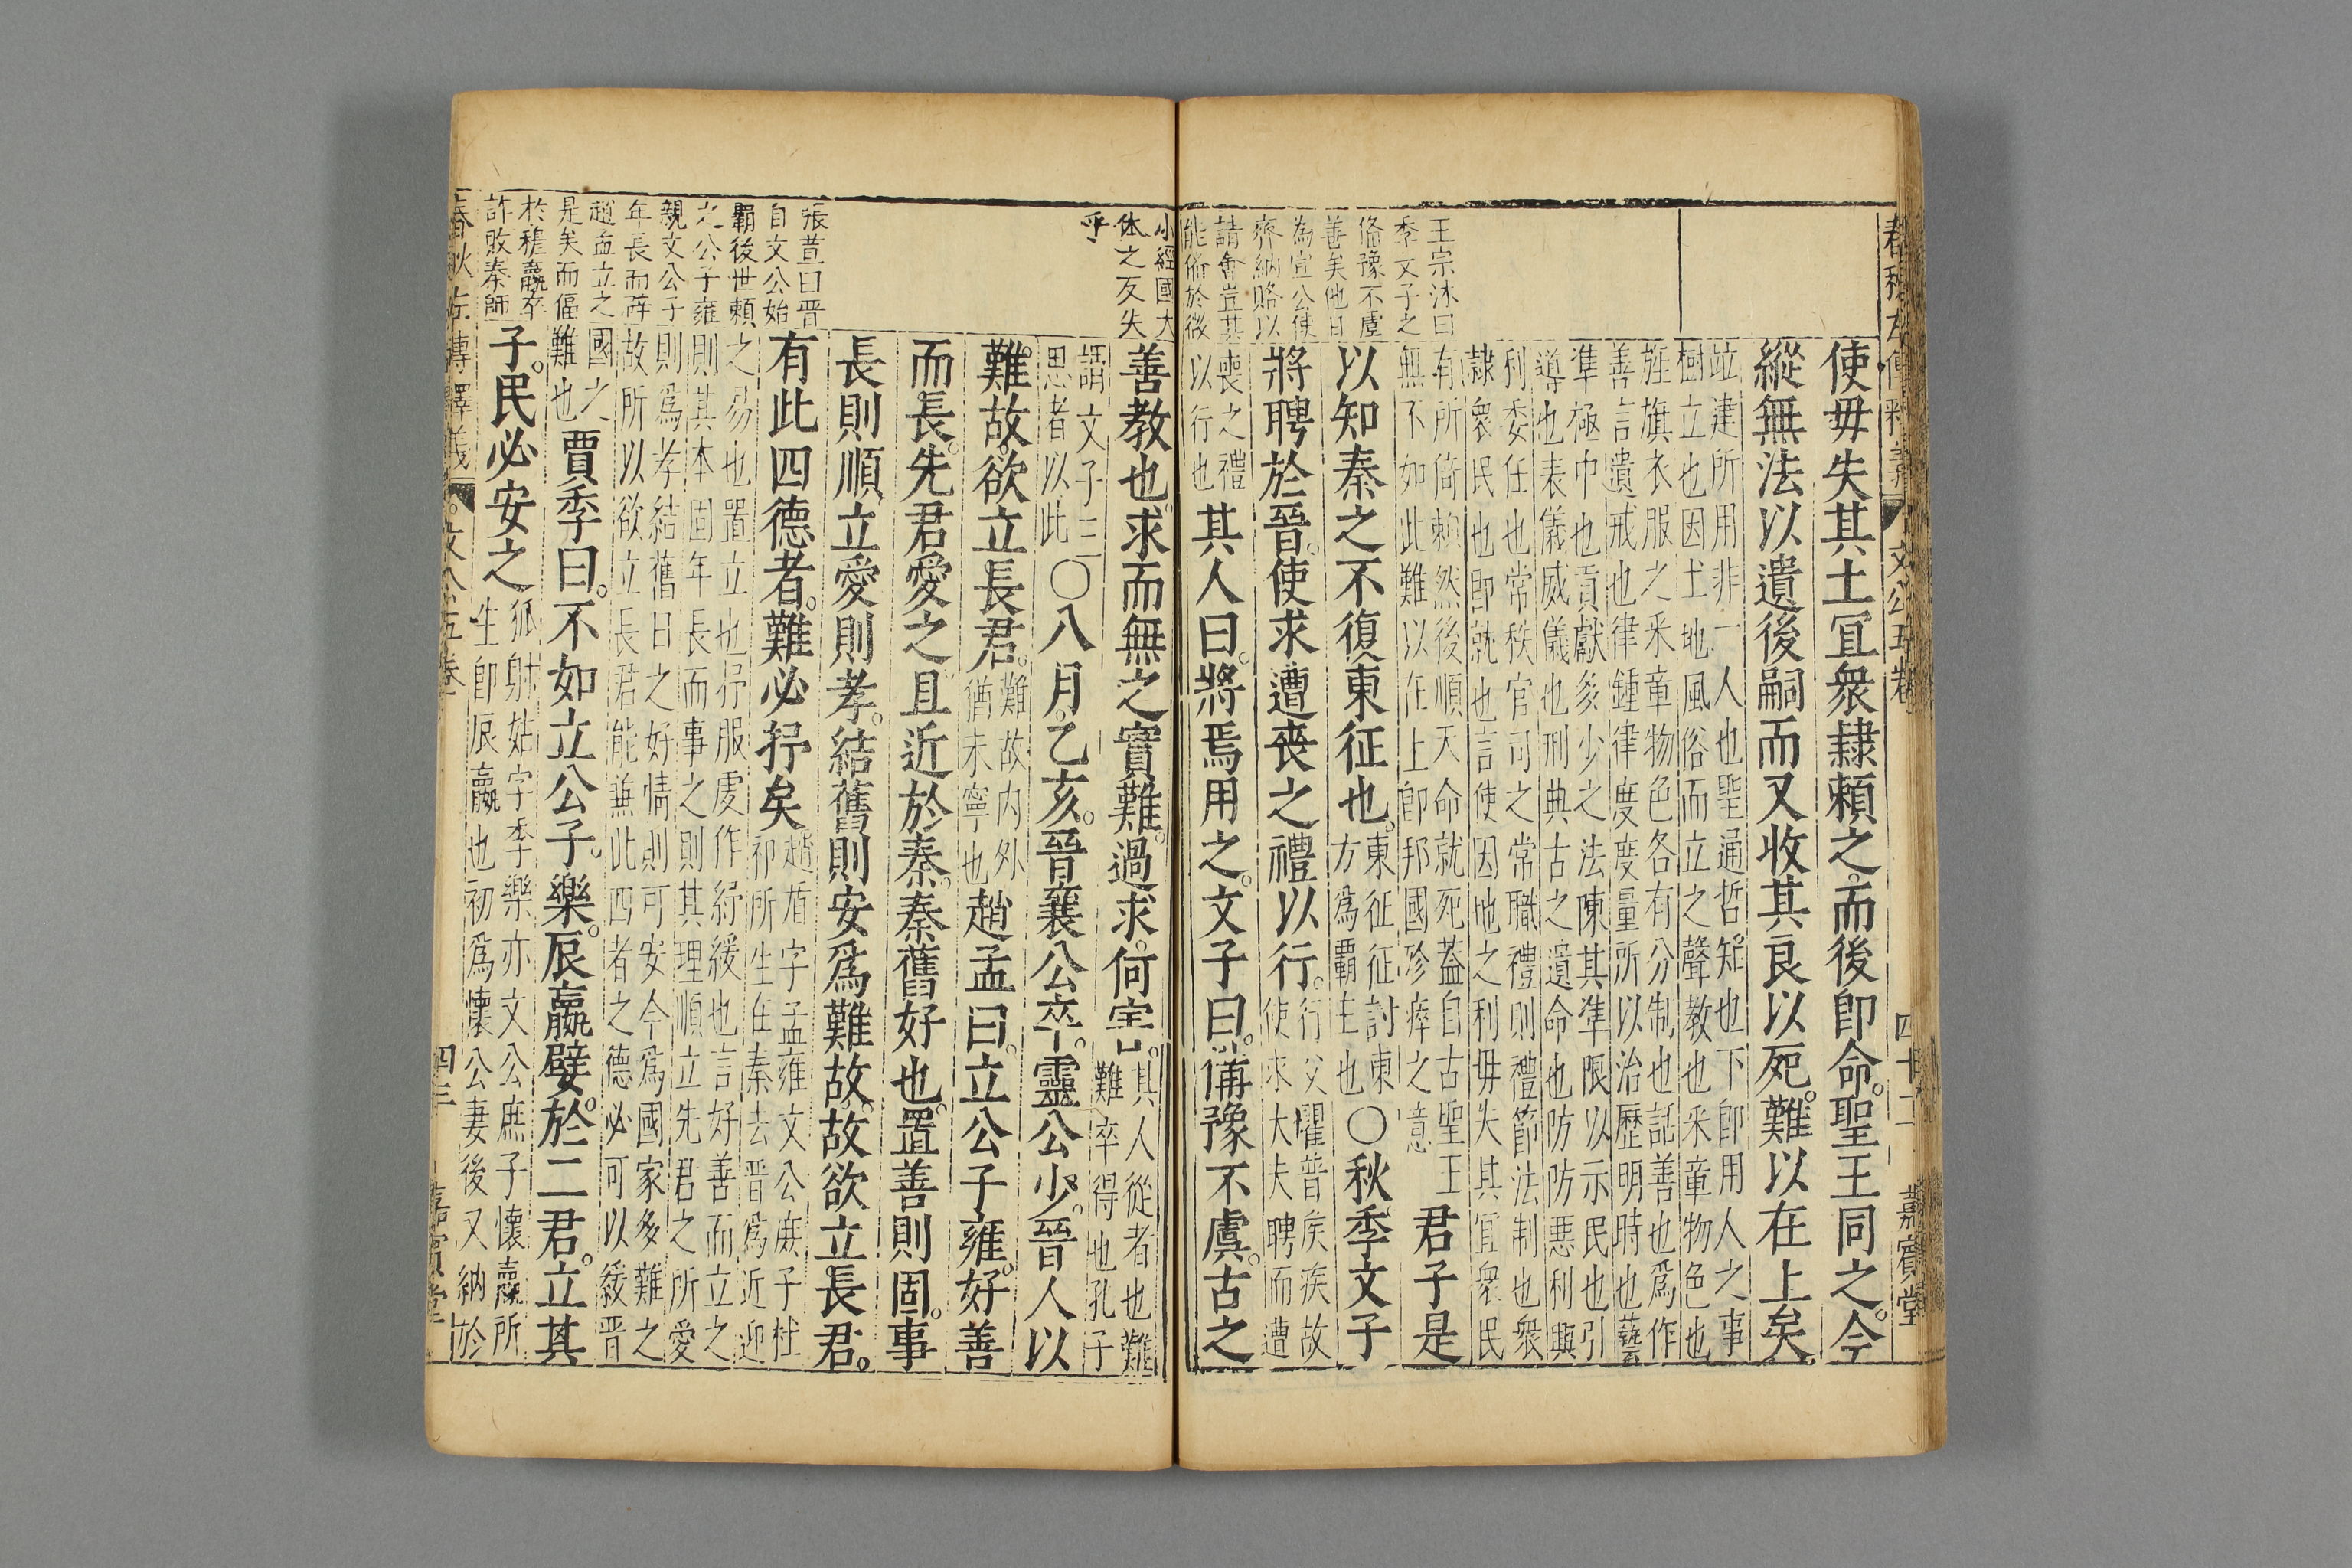 四十二 嘉賓堂
使毋失其土宜衆隷賴之而後卽命聖王同之今
縱無法以遺後嗣而又收其良以死難以在上矣
竝建所用非一人也聖通哲知也下卽用人之事
樹立也因土地風俗而立之聲教也采章物色也
旌旗衣服之采章物色各有分制也話善也爲作
善言遺戒也律鍾律度度量所以治歷明時也藝
準極中也貢獻多少之法陳其準限以示民也引
導也表儀威儀也刑典古之遺命也防防惡利興
利委任也常秩官司之常職禮則禮節法制也衆
隷衆民也卽就也言使因地之利毋失其宜衆民
有所倚賴然後順天命就死蓋自古聖王
無不如此難以在上卽邦國殄瘁之意
君子是
以知秦之不復東征也
東征征討東
方爲霸主也
〇秋季文子
將聘於晉使求遭喪之禮以行
行父聞晉矦疾故
使求大夫聘而遭
喪之禮
以行也
其人曰將焉用之文子曰備豫不虞古之
王宗沐曰
季文子之
俻豫不虞
善矣他日
為宣公使
齊納賂以
請會豈其
能俻於微
小經國大
体之反失
乎
善教也求而無之實難過求何害
其人從者也難
難卒得也孔子
謂文子三
思者以此
〇八月乙亥晉襄公卒靈公少晉人以
難故欲立長君
難故内外
猶未寧也
趙孟曰立公子雍好善
而長先君愛之且近於秦秦舊好也置善則固事
長則順立愛則孝結舊則安爲難故故欲立長君
有此四德者難必抒矣
趙盾字孟雍文公庶子杜
祁所生在秦去晋爲近迎
之易也置立也抒服虔作紓緩也言好善而立之
則其本固年長而事之則其理順立先君之所愛
則爲孝結舊日之好情則可安今爲國家多難之
故所以欲立長君能兼此四者之德必可以緩晋
國之
難也
賈季曰不如立公子樂辰嬴嬖於二君立其
子民必安之
狐射姑字季樂亦文公庶子懷嬴所
生卽辰嬴也初爲懷公妻後又納於
張萱曰晋
自文公始
霸後世賴
之公子雍
親文公子
年長而
趙孟立之
是矣而偪
於穆嬴卒
詐敗秦師
春秋左傳釋義 文公五卷 四三 嘉賓堂